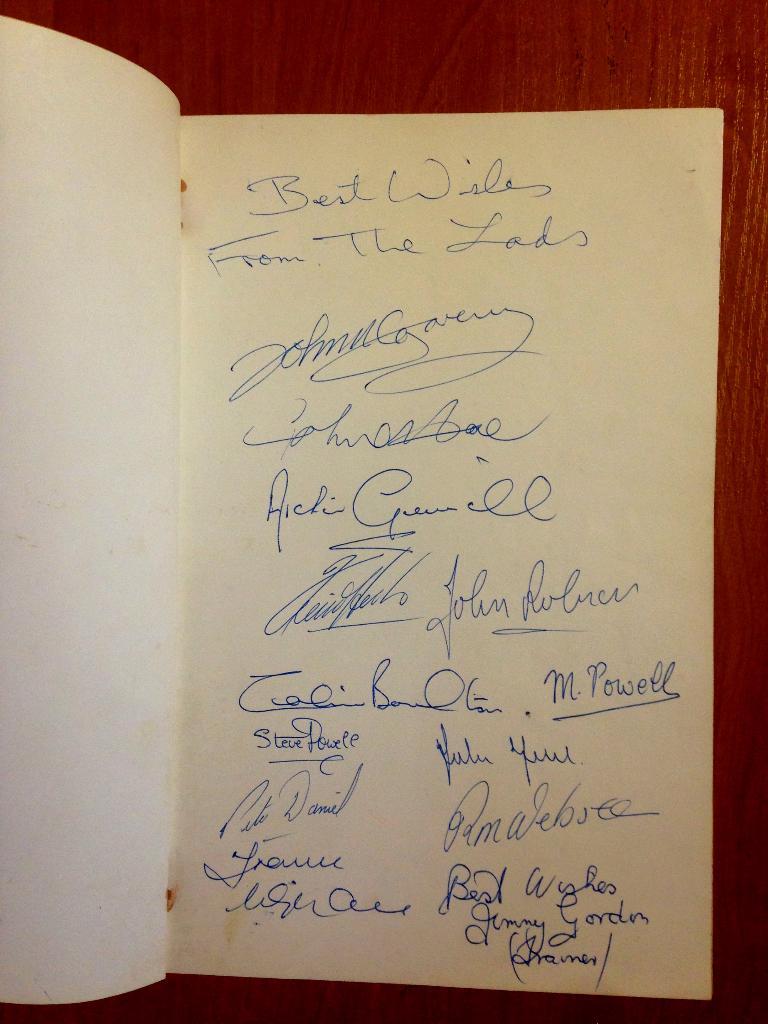 Best Wishes
From The Lads
John McGovern
John O'Hare
Archie Gemmill
John Robson
Colin Boulton
M. Powell
Steve Powell
Pete Daniel
Ron Webster
Best Wishes
Jimmy Gordon
(Trainer)